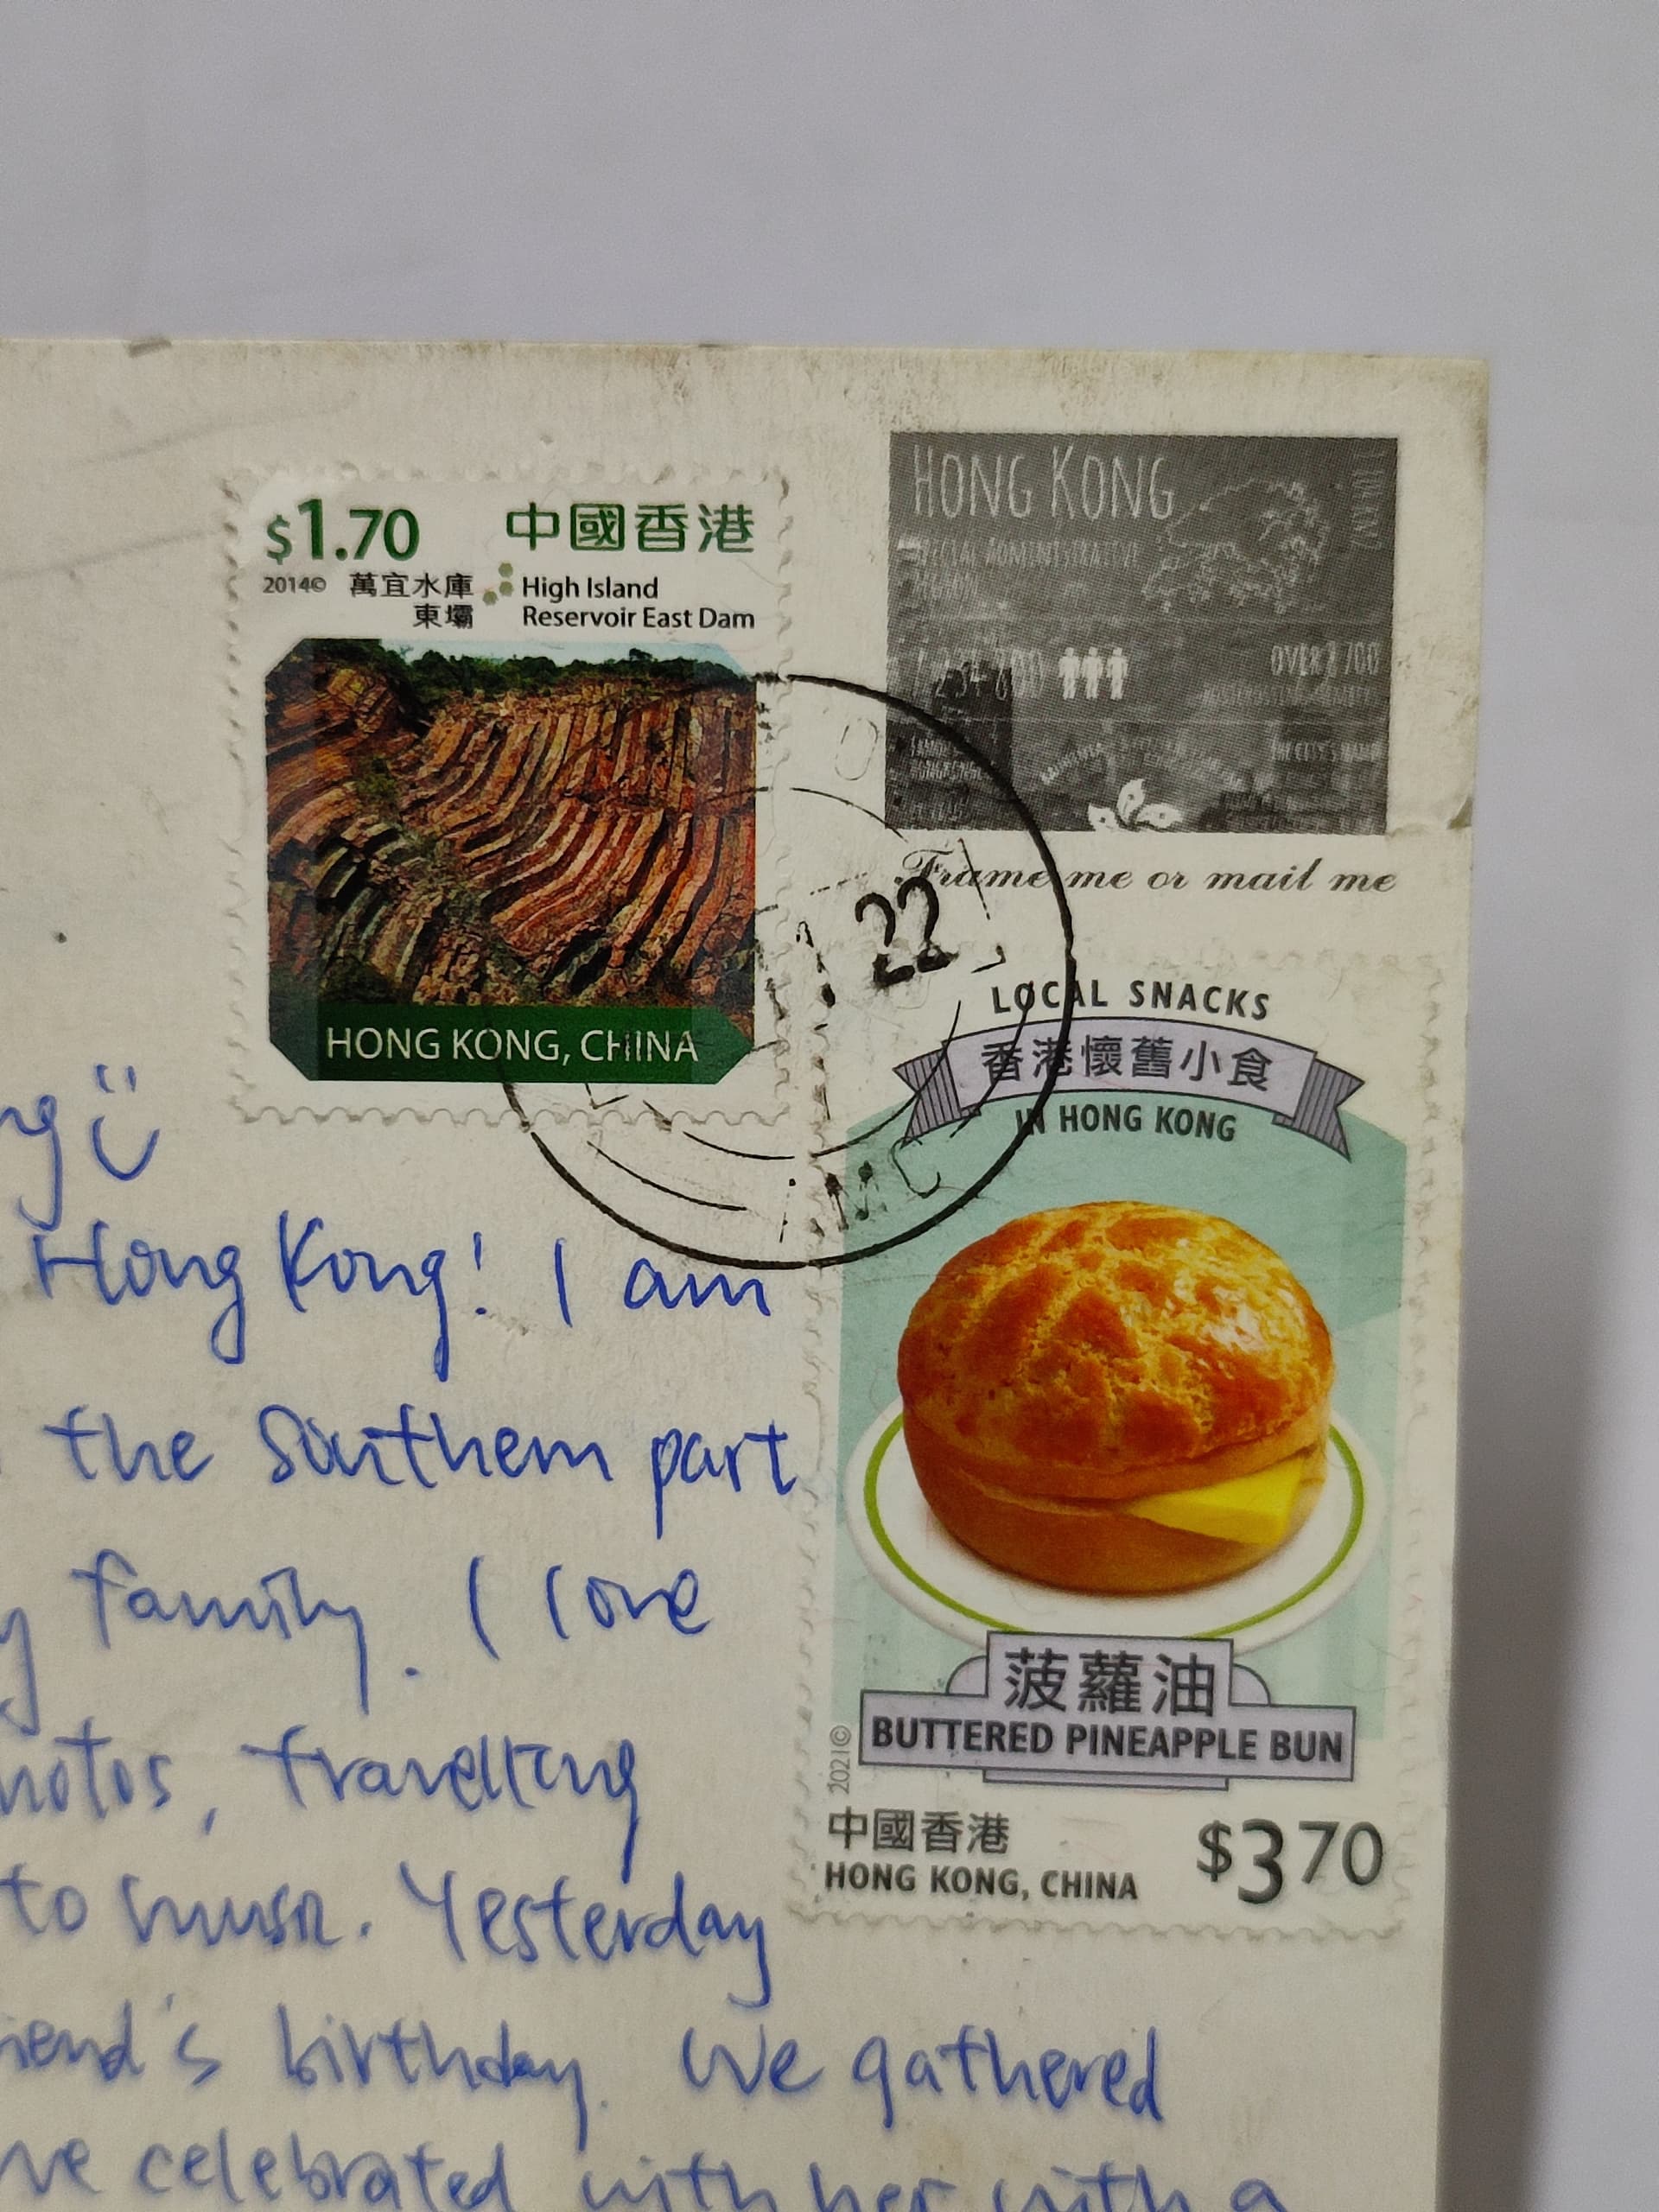 $1.70 中國香港
2014© 萬宜水庫 High Island
東壩 Reservoir East Dam
HONG KONG, CHINA
HONG KONG
OVER 8 700
THE CITY'S NAME
Frame me or mail me
22
LOCAL SNACKS
香港懷舊小食
IN HONG KONG
菠蘿油
BUTTERED PINEAPPLE BUN
2021©
中國香港
HONG KONG, CHINA $3.70
Hong Kong! I am
the Southern part
family. I love
travelling
to music. Yesterday
birthday. We gathered
celebrated with her with a